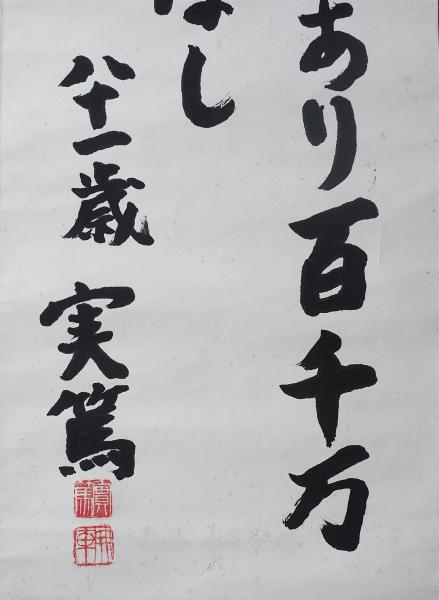 あり百千万
なし
八十一歳 実篤